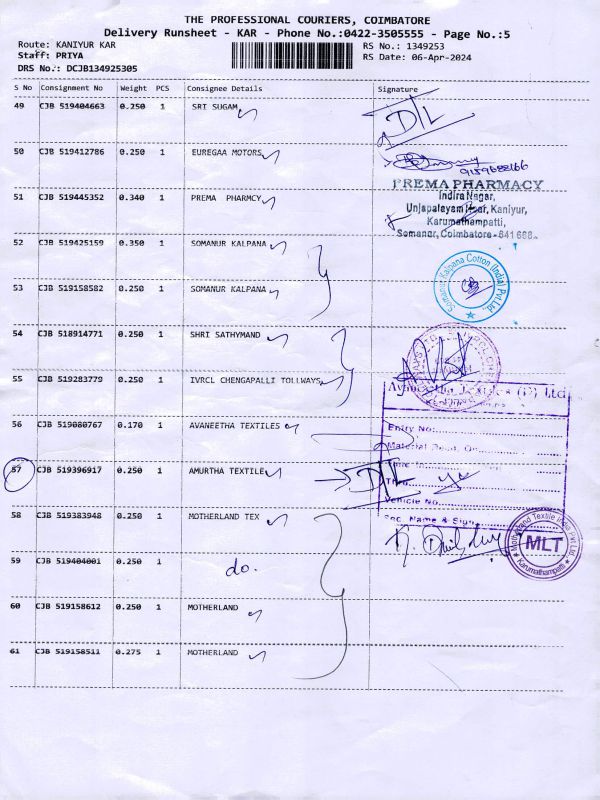 THE PROFESSIONAL COURIERS, COIMBATORE
Delivery Runsheet - KAR - Phone No.:0422-3505555 - Page No.:5
Route: KANIYUR KAR
Staff: PRIYA
DRS No.: DCJB134925305
RS No.: 1349253
RS Date: 06-Apr-2024
S No Consignment No Weight PCS Consignee Details Signature
49 CJB 519404663 0.250 1 SRI SUGAM D/L
50 CJB 519412786 0.250 1 EUREGAA MOTORS
9159688166
51 CJB 519445352 0.340 1 PREMA PHARMCY
PREMA PHARMACY
Indira Nagar,
Unjapalayam Kaniyur,
Karumathampatti,
Somanur, Coimbatore-641 668.
52 CJB 519425159 0.350 1 SOMANUR KALPANA
53 CJB 519158582 0.250 1 SOMANUR KALPANA
Somanur Kalpana Cotton (India) Pvt Ltd.,
54 CJB 518914771 0.250 1 SHRI SATHYMAND
55 CJB 519283779 0.250 1 IVRCL CHENGAPALLI TOLLWAYS
56 CJB 519080767 0.170 1 AVANEETHA TEXTILES
Avaneetha Textiles (P) Ltd
Entry No:
57 CJB 519396917 0.250 1 AMURTHA TEXTILE D/L
Vehicle No.
Sec. Name & Sign
58 CJB 519383948 0.250 1 MOTHERLAND TEX
Motherland Textile India Pvt Ltd.,
MLT
Karumathampatti
59 CJB 519404001 0.250 1 do.
60 CJB 519158612 0.250 1 MOTHERLAND
61 CJB 519158511 0.275 1 MOTHERLAND